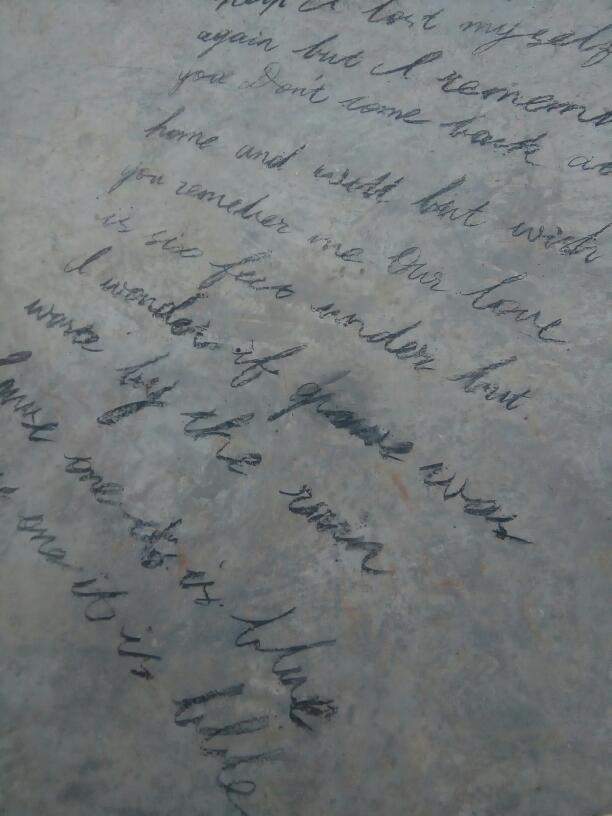 help I lost myself
again but I rememb
you Don't come back
home and but with
you remeber me Our love
is six feet under but
I wonder if was
by the rain
one it is blue
one it is